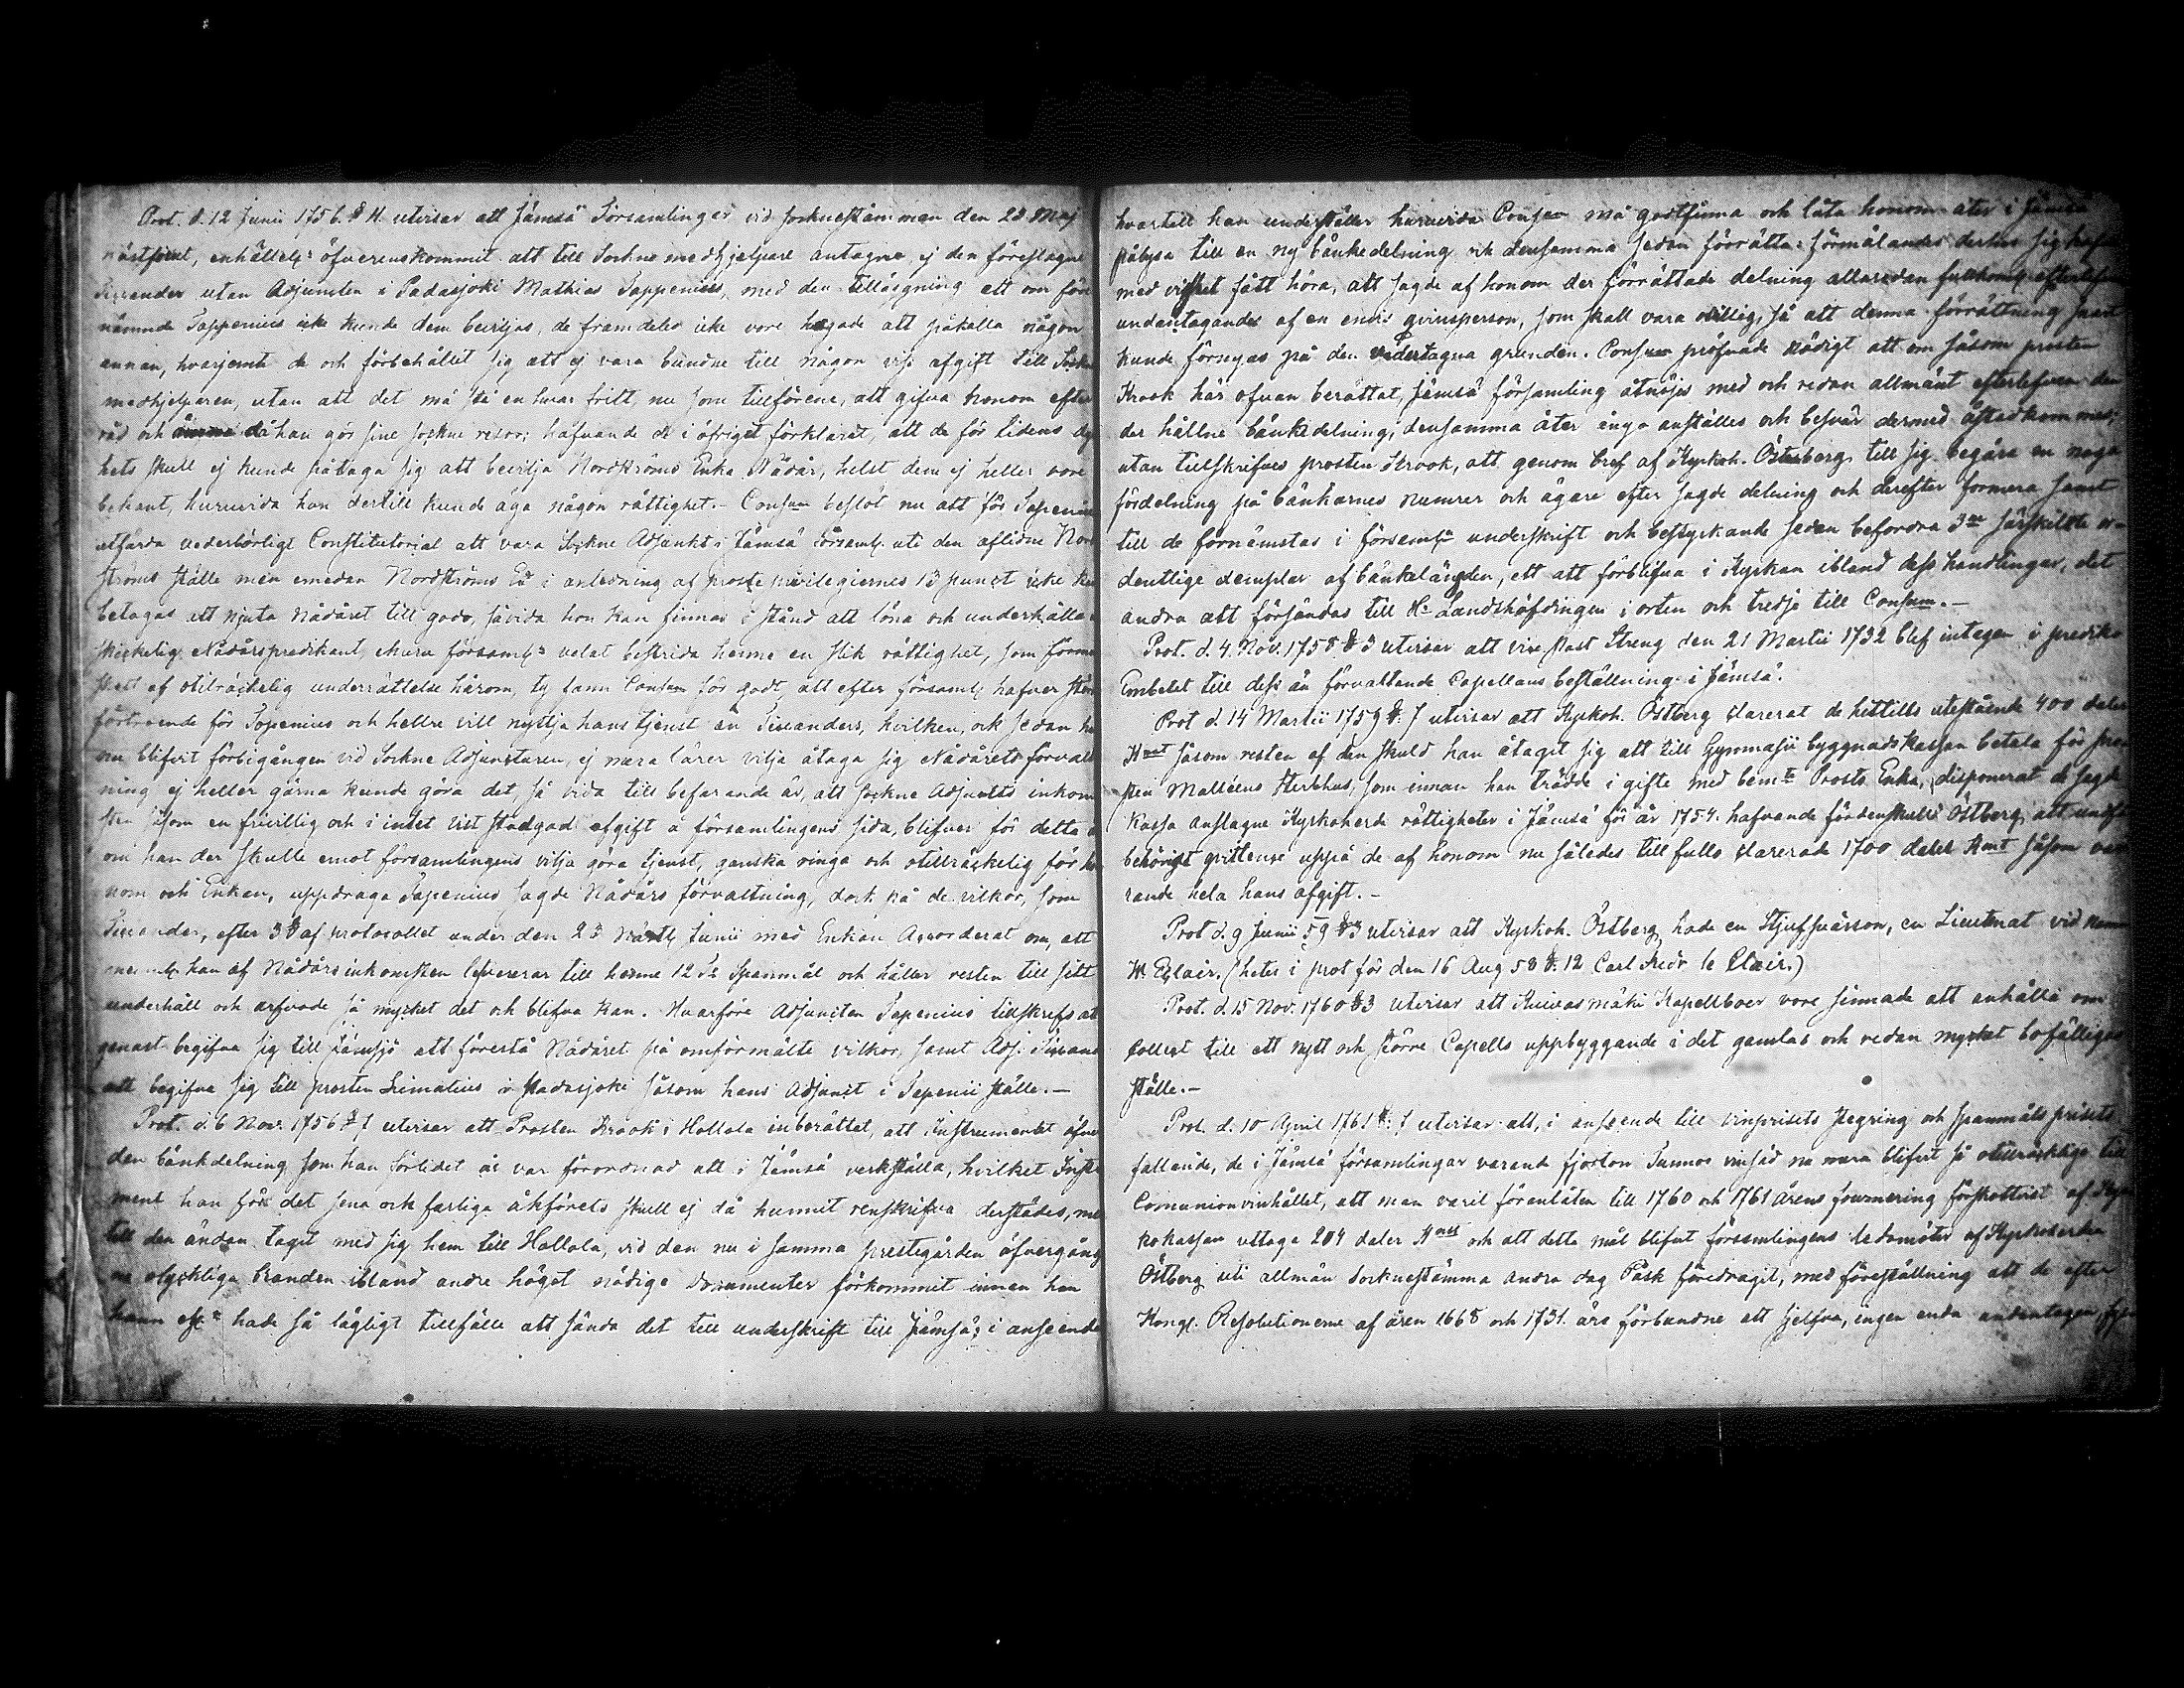 Prot. d. 12 Junii 1756. § 11. utvisar att Jämsä Församlingar vid sockneståmman den 23 Maj
nästförut, enhällel: öfverenskommit att till Sockne medhjelpare antagna ej den föreslagne
utan Adjuncten i Padasjoki Mathias Tappenius, med den tilläsgning att om före
nämnde Tappenius icke kunde dem beviljas, de framdeles icke vore hogade att påkalla någon
annan, hvarjemte de och förbehållit sig att ej vara bundne till någon viss afgift till Sockne
medhjelparen, utan att det må stå en hvar fritt, nu som tillförene, att gifva honom efter
råd och då han gör sine sockne resor; hafvande de i öfrigt förklarat, att de för tidens dyr
hets skull ej kunde påtaga sig att bevilja Nordströms Enka Nådår, helst dem ej heller vore
bekant, huruvida hon dertill kunde äga någon rättighet. - Consum beslöt nu att för Tapenius
utfärda vederbörligt Constitutorial att vara Sockne Adjunkt i Jämsä Församl. uti den aflidne Nord
ströms ställe men emedan Nordströms E: i anledning af preste privilegiernes 13 punct icke kan
betagas att njuta Nådåret till godo, såvida hon kan finnas i stånd att löna och underhålla
skickelig Nådårspredikant, churu församl:n velat bestrida henne en slik rättighet, som förme
skett af otilräckelig underrättelse härom, ty fann Consum för godt, att efter församl. hafver
förtroende för Tapenius och hellre vill nyttja hans tjenst än Tinanders, hvilken, ock sedan han
nu blifvit förbigången vid Sockne Adjuncturen, ej mera lärer vilja åtaga sig Nådårets förvalt
ning ej heller gärna kunde göra det, så vida till befarande är, att sockne Adjuncts inkom
sten såsom en frivillig och i intet vist stadgad afgift å församlingens sida, blifver för detta
om han der skulle emot församlingens vilja göra tjenst, ganska ringa och otillräckelig för ho
nom och Enkan, uppdraga Tapenius sagde Nådårs förvaltning, dock på de vilkor, som
Tinander, efter 3 § af protocollet under den 23 nästl. Junii med Enkan Accorderat om, att
han af Nådårsinkomsten levererar till henne 12 Tr Spanmål och håller resten till sitt
underhåll och arfvode så mycket det och blifva kan. Hvarföre Adjuncten Tapenius tillskrefs at
genast begifva sig till Jämsjö att förestå Nådåret på omförmälte vilkor, samt Adj. Tinand
att begifva sig till prosten Limatius i Padasjoki såsom hans Adjunct i Tapenii ställe. -
Prot. d. 6 Nov. 1756 § 1 utvisar att Prosten Krook i Hollola inberättat, att Instrumentet öfver
den bänkdelning, som han förlidet år var förordnad att i Jämsä verkställa, hvilket Instru
ment han för det sena och farliga åkförets skull ej då hunnit renskrifva derstädes, men
till den ändan tagit med sig hem till Hollola, vid den nu i samma prestegården öfvergång
ne olyckliga branden ibland andre höget nödige documenter förkommit innan han
hade så lägligt tillfälle att sända det till underskrift till Jämsä; i anseende
hvartill han underställer huruvida Consum må godtfinna och låta honom åter i Jämsä
pålysa till en ny bänkedelning och densamma sedan förrätta: förmälandes derhos sig hafva
med visshet fått höra, att sagde af honom der förrättade delning allaredan
undantagandes af en envis qvinsperson, som skall vara ovillig, så att denna förrättning snart
kunde förnyas på den vedertagna grunden. Consum pröfvade nödigt att om såsom prosten
Krook här ofvan berättat, Jämsä församling åtnöjes med och redan allmänt efterlefver den
der hållne bänkedelning, densamma åter ånyo anställes och besvär dermed åstadkommes;
utan tillskrifves prosten Krook, att genom bref af Kyrkoh. Östberg, till sig begära en noga
fördelning på bänkarnes numrer och ägare efter sagde delning och derefter formera samt
till de förnämstas i församl:n underskrift och bestyrkande sedan befordra 3ne särskilte or-
dentlige exemplar af bänkelängden, ett att förblifva i Kyrkan ibland dess handlingar, det
andra att försändas till Hr Landshöfdingen i orten och tredje till Consum. -
Prot. d. 4. Nov. 1758 § 3 utvisar att vice Past Streng den 21 Martii 1732 blef intagen i prediko
Embetet till dess än förvaltande Capellans beställning i Jämsä.
Prot d. 14 Martii 1759 §. 7 utvisar att Kyrkoh. Östberg clarerat de hittills utestående 400 daler
Kmt såsom resten af den skuld han åtagit sig att till Gymnasii byggnadskassan betala för pro
sten Molléens sterbhus, som innan han trädde i gifte med bemte Prosts Enka, disponerat de sagde
Kassa anslagne Kyrkoherde rättigheter i Jämsä för år 1754. hafvande fördenskull Östberg, att undfå
behörigt qvittence uppå de af honom nu således till fullo clarerade 1700 daler Kmt såsom va
rande hela hans afgift. -
Prot d. 9 Junii 59 § 3 utvisar att Kyrkoh. Östberg hade en Stjufsvärson, en Lieutnat vid namn
W. Eclair. (heter i prot för den 16 Aug 58 §. 12 Carl Fredr le Clair.)
Prot. d. 15 Nov. 1760 § 3 utvisar att Kuivasmäki Kapellboer vore sinnade att anhålla om
Collect till ett nytt och större Capells uppbyggande i det gamlas och redan mycket bofälliges
ställe. -
Prot. d. 10 April 1761 §. 7 utvisar att, i anseende till vinprisets stegring och spanmåls prisets
fallande, de i Jämsä församlingar varande fjorton Tunnor vinsäd nu mera blifvit så otillräcklige till
Comunionvinhållet, att man varit förenlåten till 1760 och 1761 årens fournering förskottvist af Kyr
kokassan uttaga 204 daler Kmt och att detta mål blifvit församlingens ledamöter af Kyrkoherden
Östberg uti allmän Sockneståmma andra dag Påsk föredragit, med föreställning att de efter
Kongl. Resolutionerne af åren 1668 och 1731. äro förbundne att sjelfva, ingen enda undantagen,